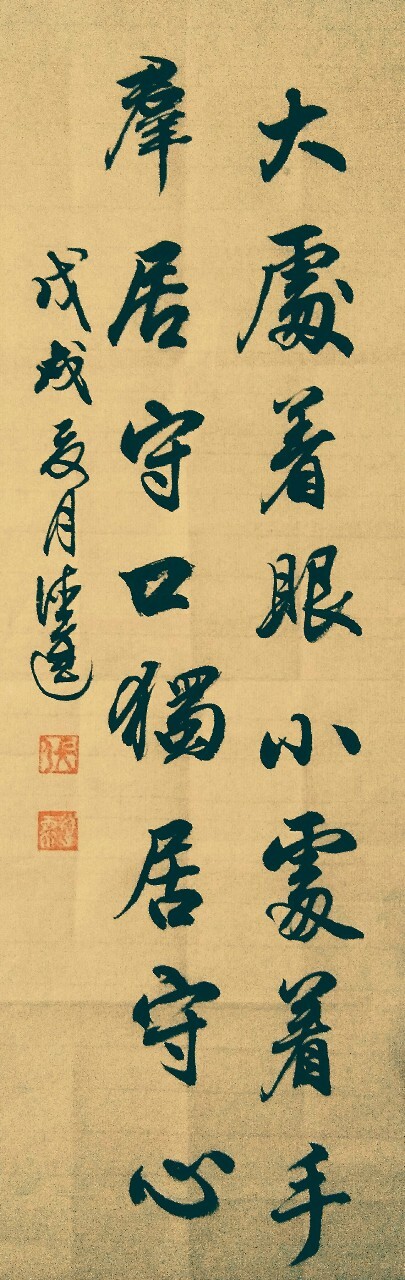 大處着眼小處着手
羣居守口獨居守心
戊戌夏月
張